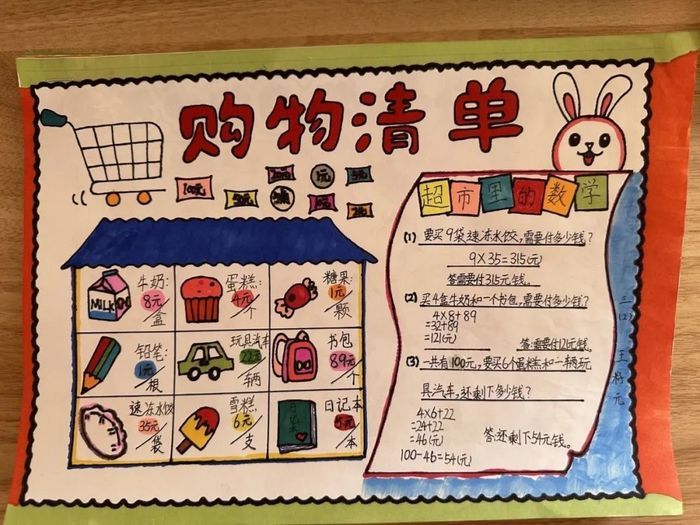 购物清单
100元
1元
超市里的数学
牛奶:
8元/盒
MILK
蛋糕:
4元/个
糖果:
1元/颗
铅笔:
1元/根
玩具汽车
22元/辆
书包
89元/个
速冻水饺
35元/袋
雪糕:
6元/支
日记本
5元/本
(1) 要买9袋速冻水饺,需要付多少钱?
9×35=315(元)
答需要付315元钱。
(2) 买4盒牛奶和一个书包,需要付多少钱?
4×8+89
=32+89
=121(元)
答:需要付12元钱。
(3) 一共有100元,要买6个蛋糕和一辆玩
具汽车,还剩下多少钱?
4×6+22
=24+22
=46(元)
100-46=54(元)
答:还剩下54元钱。
三(2)
王
元